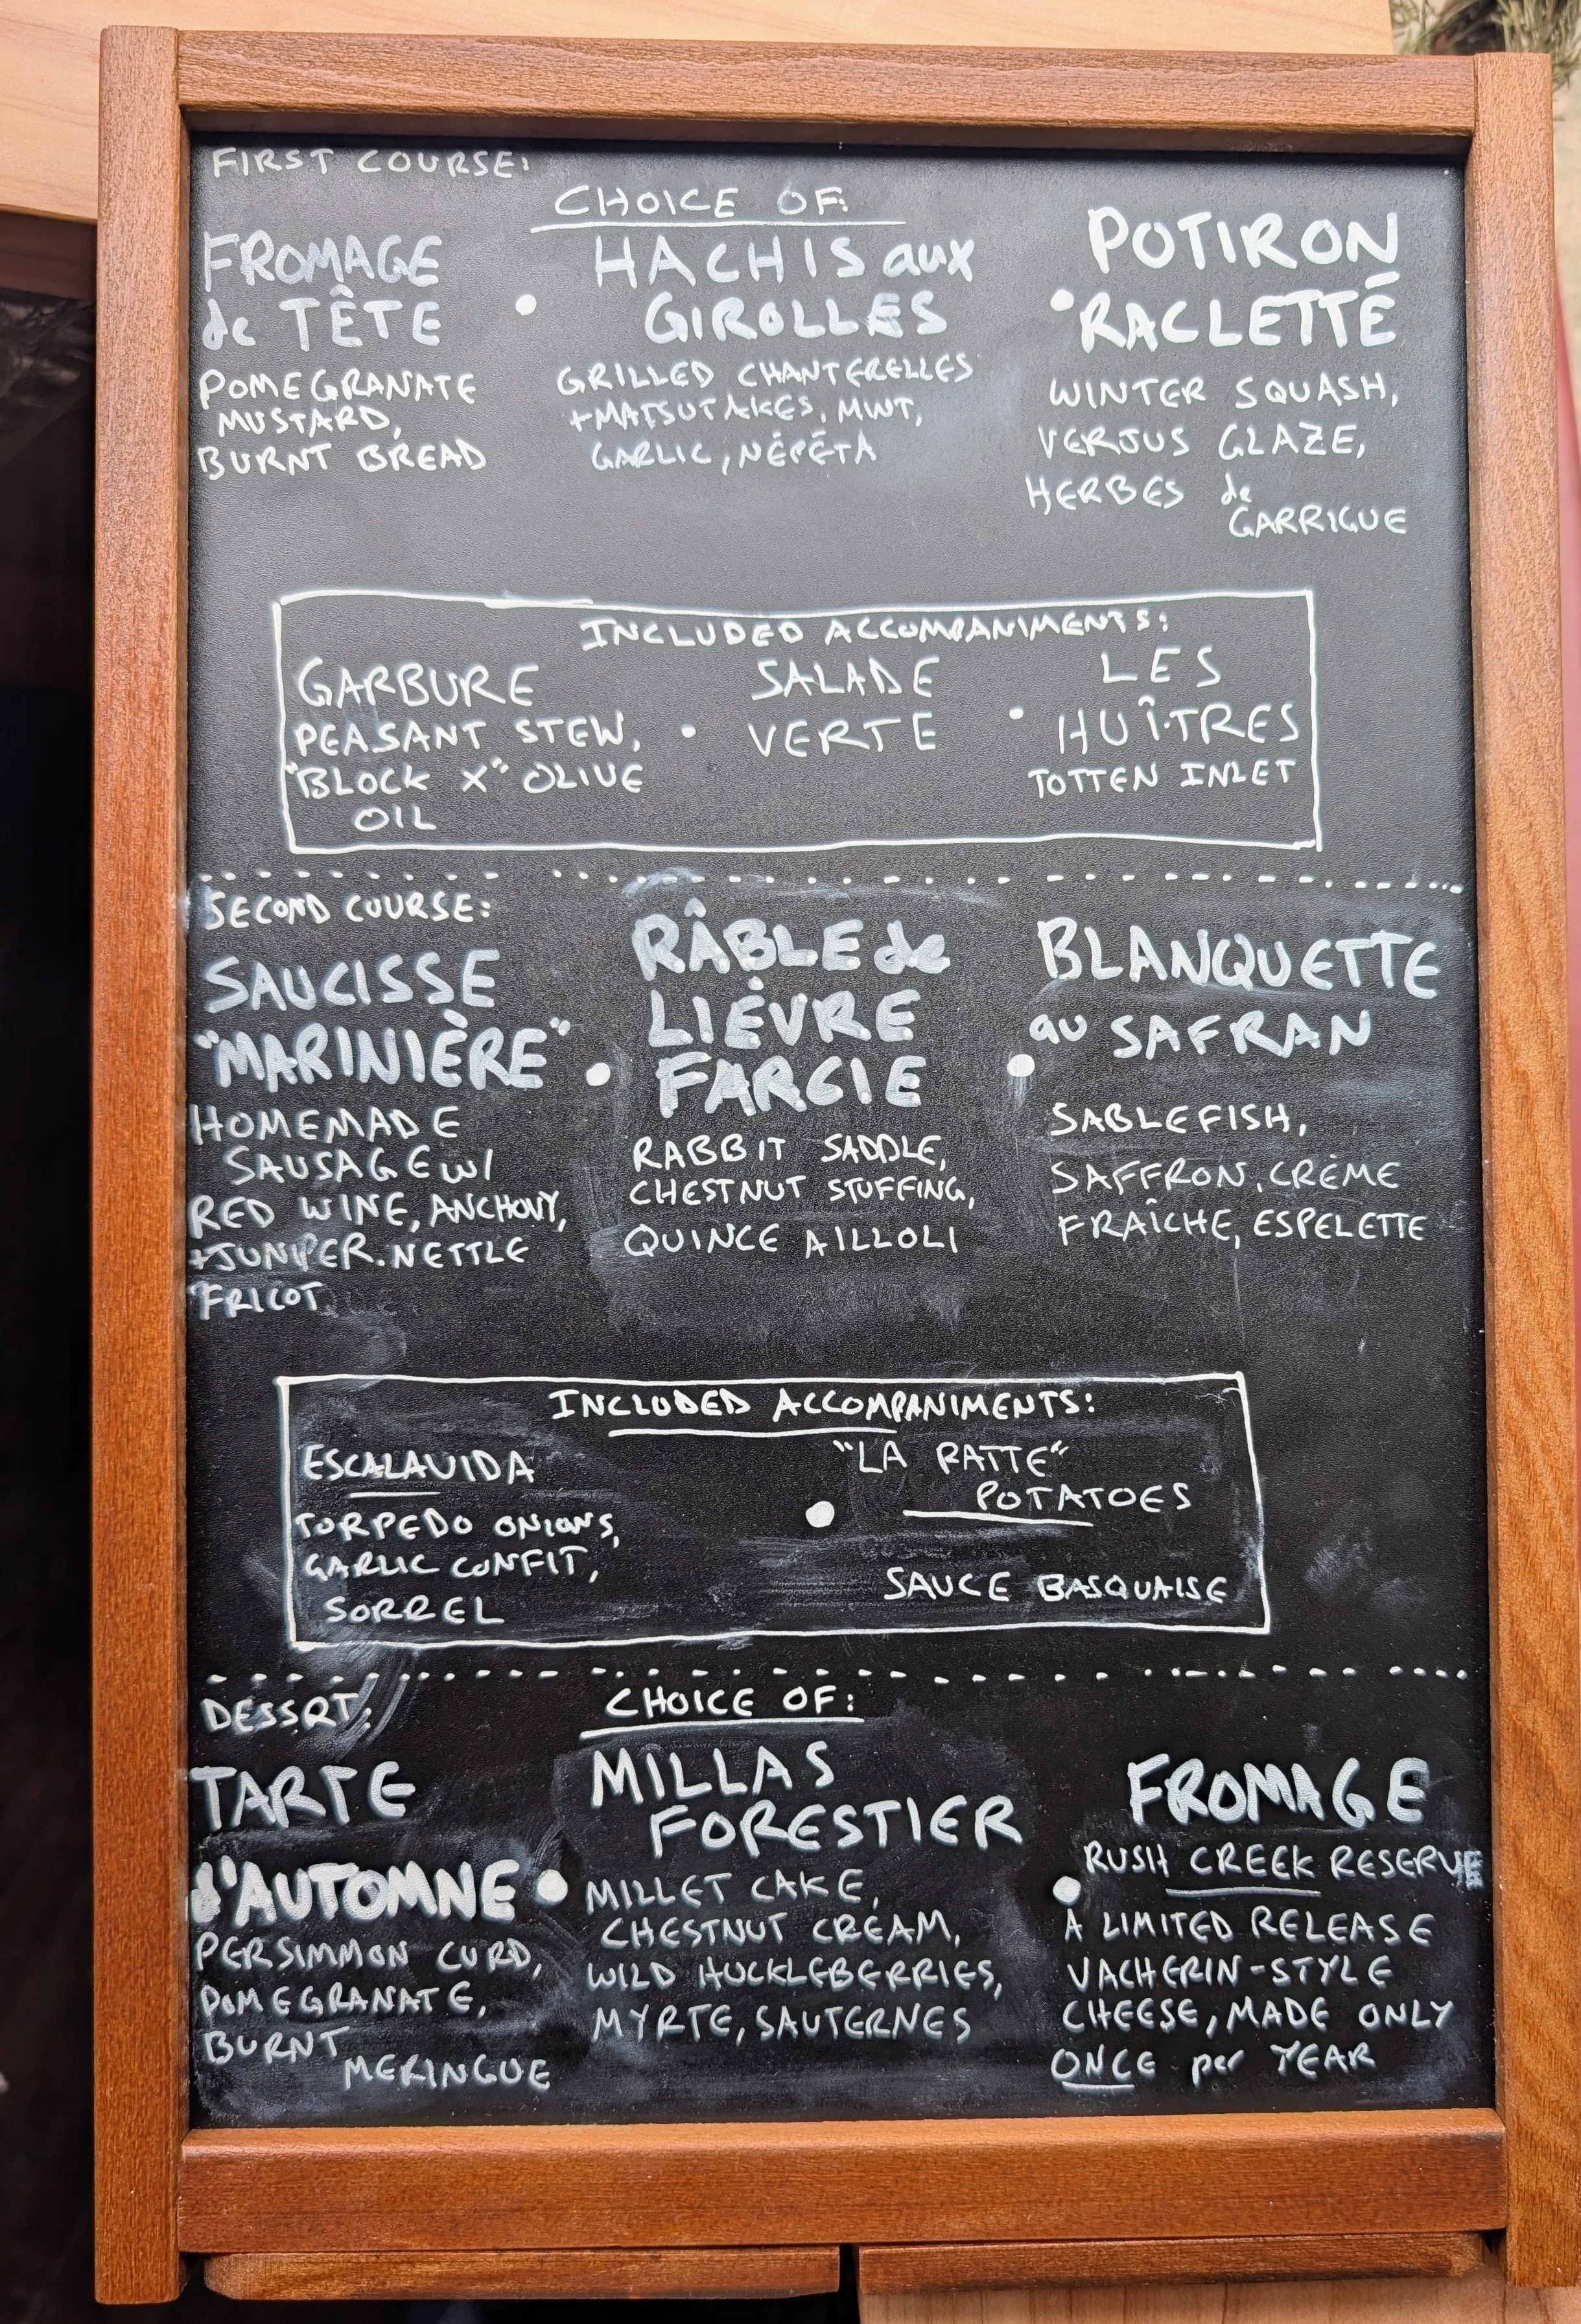 FIRST COURSE:
CHOICE OF:
FROMAGE
de TÊTE
POMEGRANATE
MUSTARD,
BURNT BREAD
HACHIS aux
GIROLLES
GRILLED CHANTERELLES
+MATSUTAKES, MINT,
GARLIC, NÉPÉTA
POTIRON
RACLETTÉ
WINTER SQUASH,
VERJUS GLAZE,
HERBES de
GARRIGUE
INCLUDED ACCOMPANIMENTS:
GARBURE
PEASANT STEW,
"BLOCK X" OLIVE
OIL
SALADE
VERTE
LES
HUÎTRES
TOTTEN INLET
SECOND COURSE:
SAUCISSE
"MARINIÈRE"
HOMEMADE
SAUSAGE W/
RED WINE, ANCHOVY,
+JUNIPER. NETTLE
FRICOT
RÂBLE de
LIÉVRE
FARCIE
RABBIT SADDLE,
CHESTNUT STUFFING,
QUINCE AILLOLI
BLANQUETTE
au SAFRAN
SABLEFISH,
SAFFRON, CRÈME
FRAÎCHE, ESPELETTE
INCLUDED ACCOMPANIMENTS:
ESCALAVIDA
TORPEDO ONIONS,
GARLIC CONFIT,
SORREL
"LA RATTE"
POTATOES
SAUCE BASQUAISE
DESSRT:
CHOICE OF:
TARTE
d'AUTOMNE
PERSIMMON CURD,
POMEGRANATE,
BURNT
MERINGUE
MILLAS
FORESTIER
MILLET CAKE,
CHESTNUT CREAM,
WILD HUCKLEBERRIES,
MYRTE, SAUTERNES
FROMAGE
RUSH CREEK RESERVE
A LIMITED RELEASE
VACHERIN-STYLE
CHEESE, MADE ONLY
ONCE per YEAR